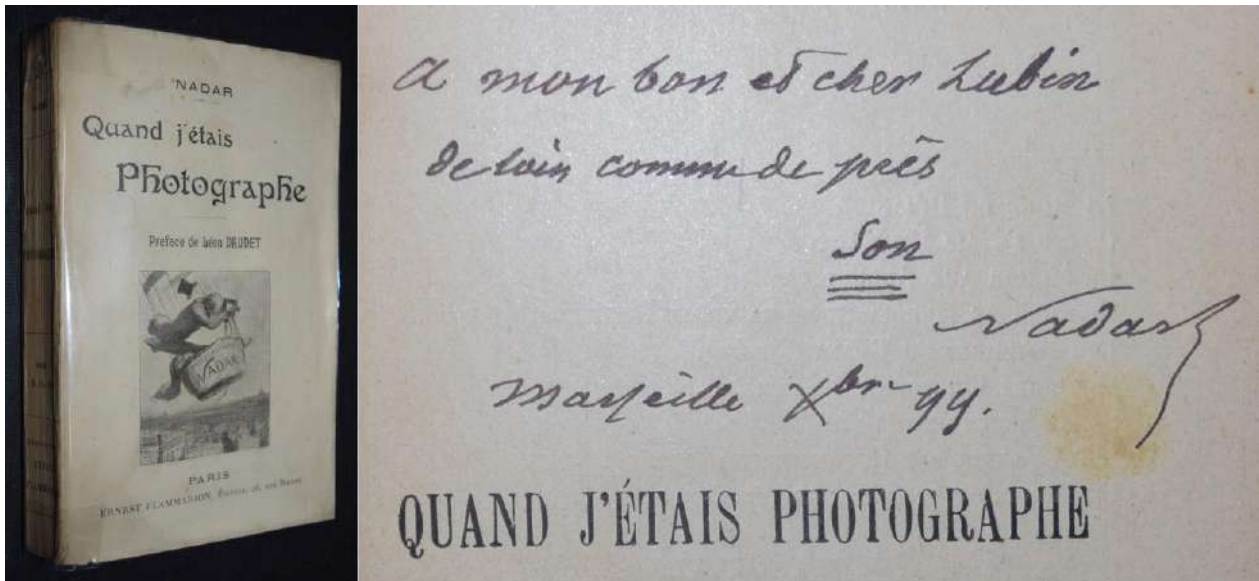 NADAR
Quand j'étais
Photographe
Préface de Léon DAUDET
NADAR
PARIS
ERNEST FLAMMARION,
A mon bon et cher Lubin
de loin comme de près
Son
Nadar
Marseille Xbre 99.
QUAND J'ÉTAIS PHOTOGRAPHE